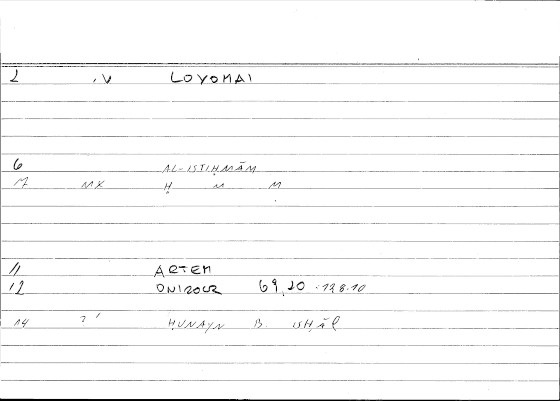 2 ,V LOYOMAI
6 AL-ISTIḤMĀM
7 MX Ḥ M M
11 ARTEM
12 ONIROCR 69,20 128.10
14 21 ḤUNAYN B. ISḤĀQ